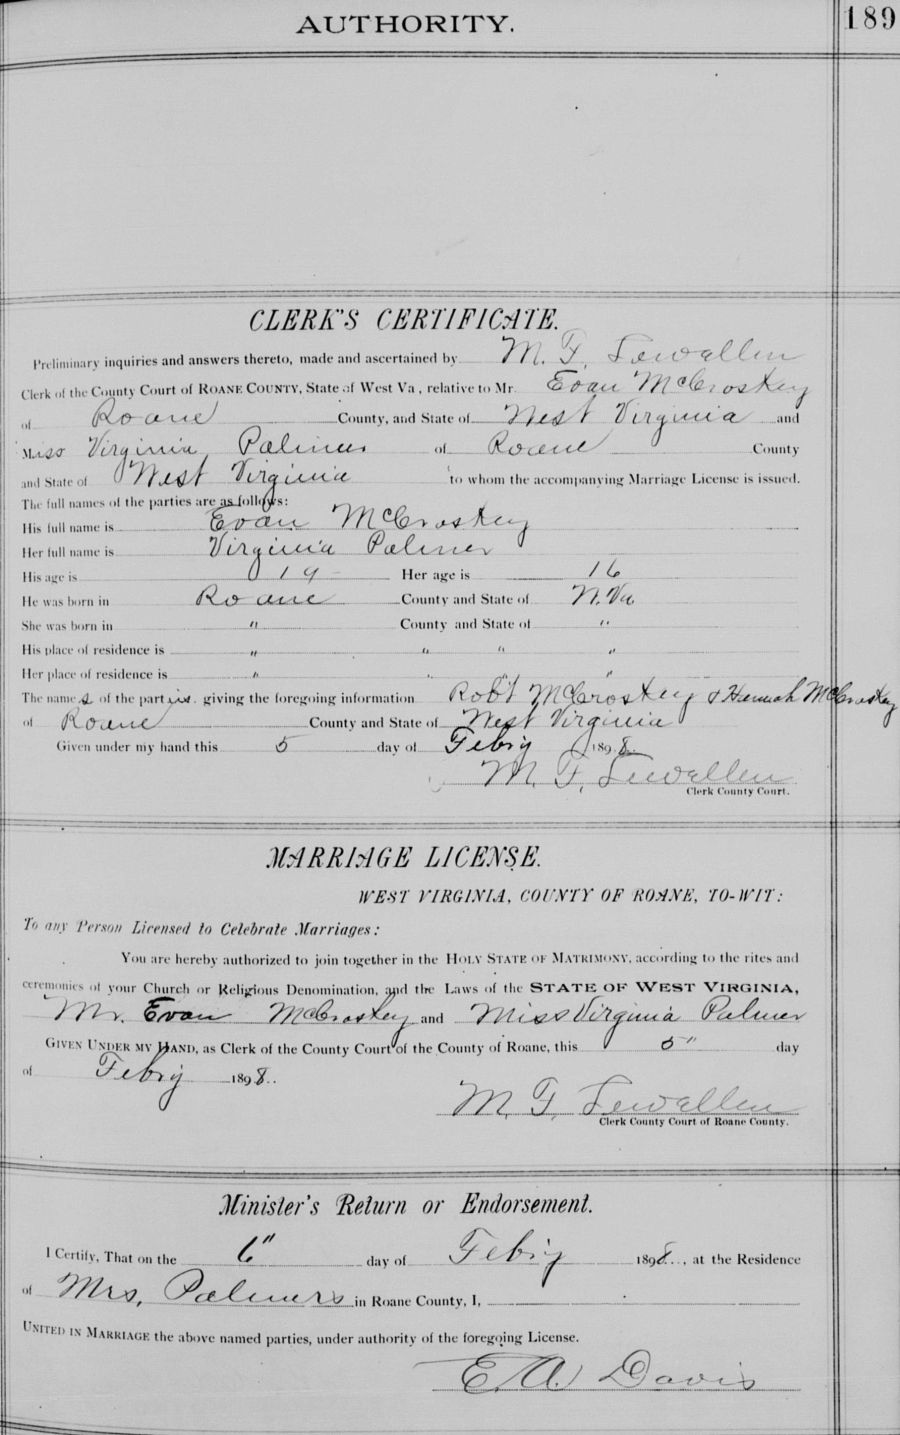 AUTHORITY. 189
CLERK'S CERTIFICATE.
Preliminary inquiries and answers thereto, made and ascertained by M. F. Lewallen
Clerk of the County Court of ROANE COUNTY, State of West Va, relative to Mr. Evan McCroskey
of Roane County, and State of West Virginia and
Miss Virginia Palmer of Roane County
and State of West Virginia to whom the accompanying Marriage License is issued.
The full names of the parties are as follows:
His full name is Evan McCroskey
Her full name is Virginia Palmer
His age is 19 Her age is 16
He was born in Roane County and State of W. Va
She was born in " County and State of "
His place of residence is " " " "
Her place of residence is " "
The names of the parties giving the foregoing information Rob't McCroskey & Hannah McCroskey
of Roane County and State of West Virginia
Given under my hand this 5 day of Febry 1898.
M. F. Lewallen
Clerk County Court.
MARRIAGE LICENSE.
WEST VIRGINIA, COUNTY OF ROANE, TO-WIT:
To any Person Licensed to Celebrate Marriages:
You are hereby authorized to join together in the HOLY STATE OF MATRIMONY, according to the rites and
ceremonies of your Church or Religious Denomination, and the Laws of the STATE OF WEST VIRGINIA,
Mr. Evan McCroskey and Miss Virginia Palmer
GIVEN UNDER MY HAND, as Clerk of the County Court of the County of Roane, this 5" day
of Febry 1898.
M. F. Lewallen
Clerk County Court of Roane County.
Minister's Return or Endorsement.
I Certify, That on the 6" day of Febry 1898., at the Residence
of Mrs, Palmers in Roane County, I,
UNITED IN MARRIAGE the above named parties, under authority of the foregoing License.
E. A. Davis